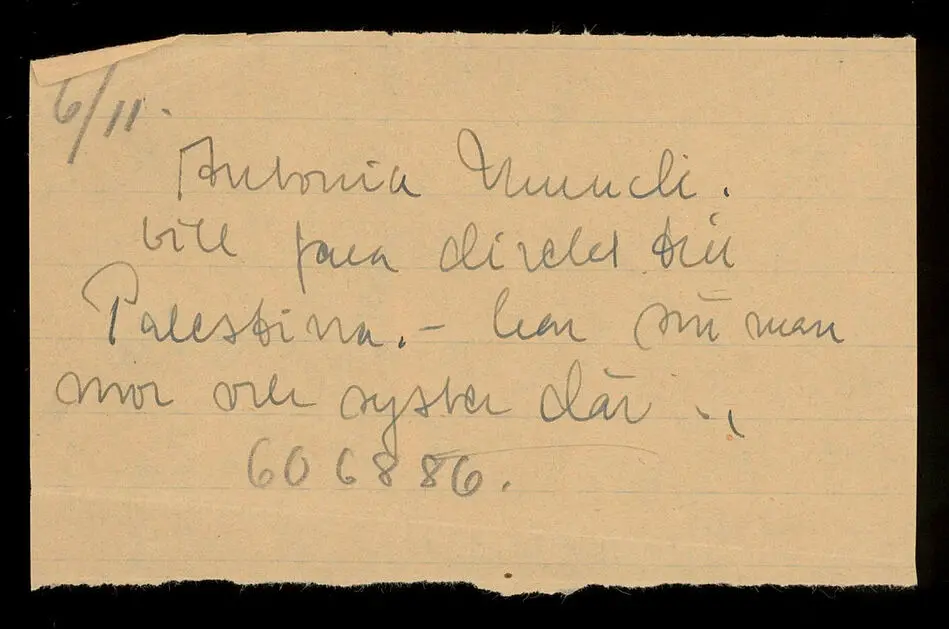 6/11.
Antonia
vill fara direkt till
Palestina. – har sin man
mor och syster där.
606886.